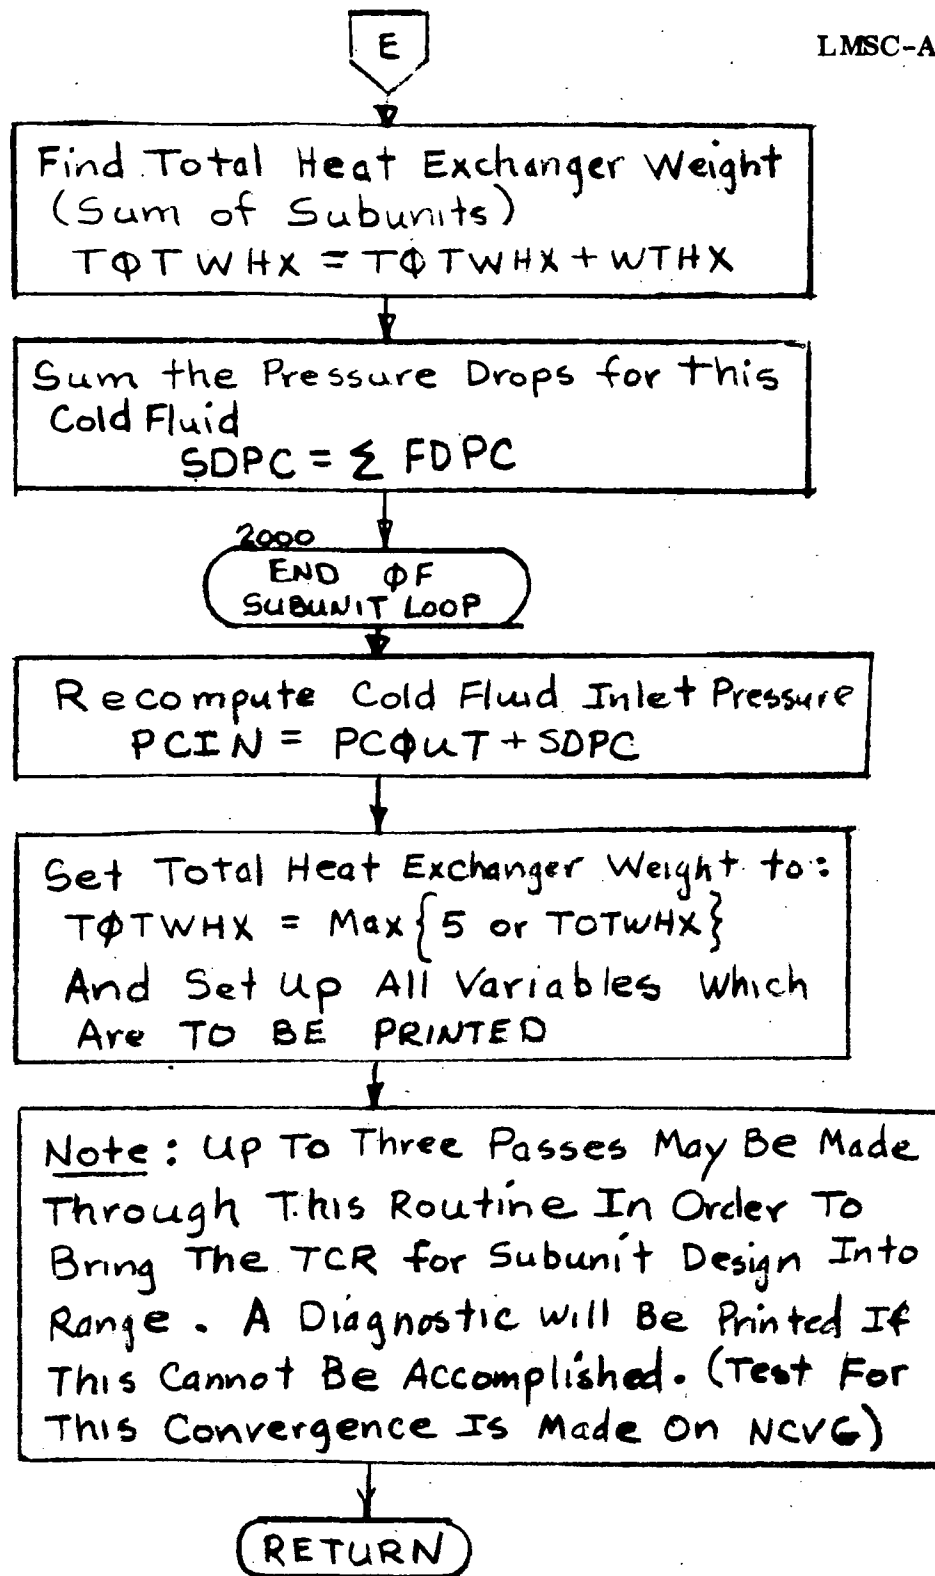 E
LMSC-A
Find Total Heat Exchanger Weight
(Sum of Subunits)
TΦTWHX = TΦTWHX + WTHX
Sum the Pressure Drops for this
Cold Fluid
SDPC = Σ FDPC
2000
END ΦF
SUBUNIT LOOP
Recompute Cold Fluid Inlet Pressure
PCIN = PCΦUT + SDPC
Set Total Heat Exchanger Weight to:
TΦTWHX = Max{5 or TOTWHX}
And Set Up All Variables Which
Are TO BE PRINTED
Note: Up To Three Passes May Be Made
Through This Routine In Order To
Bring The TCR for Subunit Design Into
Range. A Diagnostic Will Be Printed If
This Cannot Be Accomplished. (Test For
This Convergence Is Made On NCVG)
RETURN